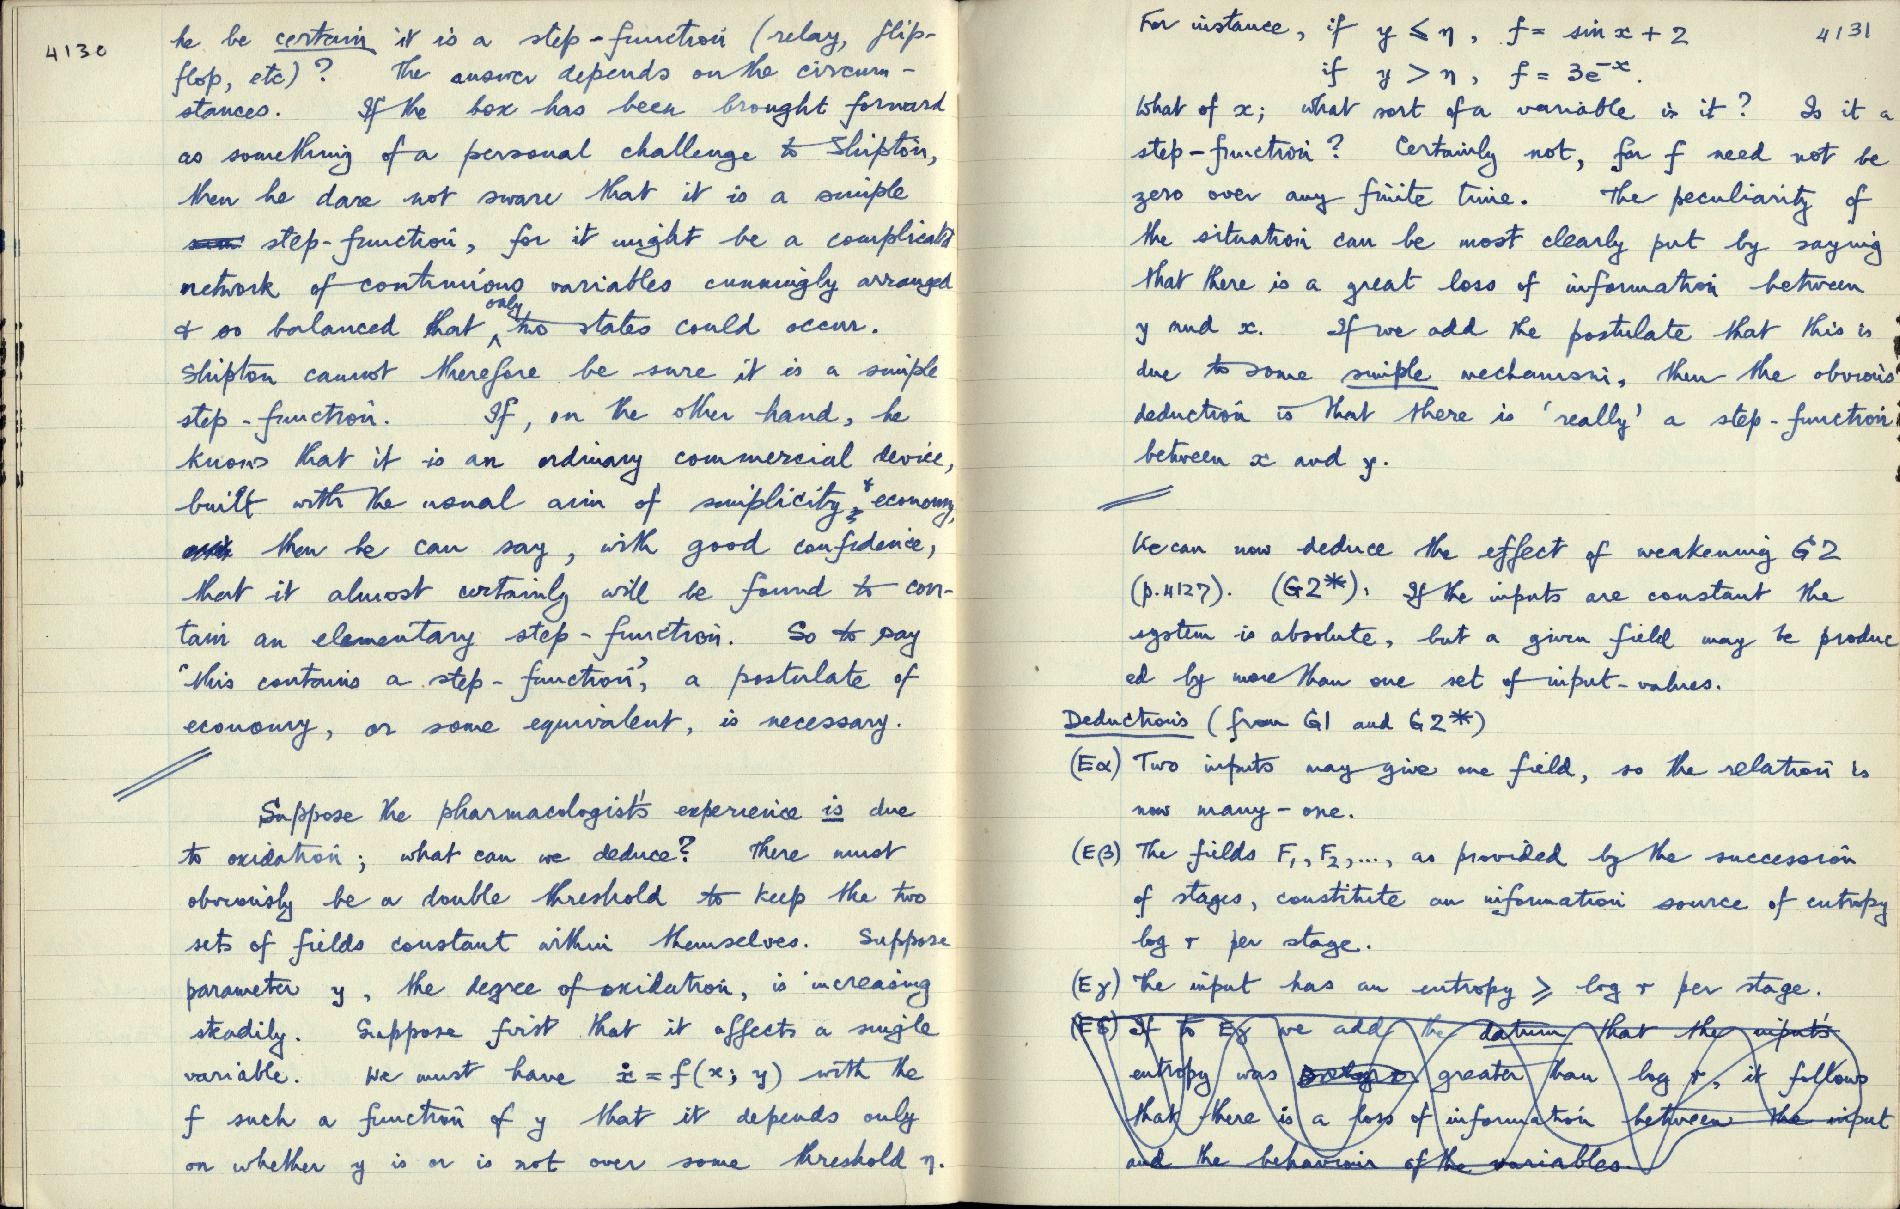 4130
he be certain it is a step-function (relay, flip-
flop, etc)? The answer depends on the circum-
stances. If the box has been brought forward
as something of a personal challenge to Shipton,
then he dare not sware that it is a simple
step-function, for it might be a complicated
network of continuous variables cunningly arranged
& so balanced that only two states could occur.
Shipton cannot therefore be sure it is a simple
step-function. If, on the other hand, he
knows that it is an ordinary commercial device,
built with the usual aim of simplicity & economy,
then he can say, with good confidence,
that it almost certainly will be found to con-
tain an elementary step-function. So to say
"this contains a step-function", a postulate of
economy, or some equivalent, is necessary.
Suppose the pharmacologist's experience is due
to oxidation; what can we deduce? There must
obviously be a double threshold to keep the two
sets of fields constant within themselves. Suppose
parameter y, the degree of oxidation, is increasing
steadily. Suppose first that it affects a single
variable. We must have ẋ = f(x; y) with the
f such a function of y that it depends only
on whether y is or is not over some threshold η.
4131
For instance, if y ≤ η, f = sin x + 2
if y > η, f = 3e⁻ˣ.
What of x; what sort of a variable is it? Is it a
step-function? Certainly not, for f need not be
zero over any finite time. The peculiarity of
the situation can be most clearly put by saying
that there is a great loss of information between
y and x. If we add the postulate that this is
due to some simple mechanism, then the obvious
deduction is that there is 'really' a step-function
between x and y.
We can now deduce the effect of weakening G2
(p.4127). (G2*): If the inputs are constant the
system is absolute, but a given field may be produc
ed by more than one set of input-values.
Deductions (from G1 and G2*)
(Eα) Two inputs may give one field, so the relation is
now many-one.
(Eβ) The fields F₁, F₂, ..., as provided by the succession
of stages, constitute an information source of entropy
log r per stage.
(Eγ) The input has an entropy ⩾ log r per stage.
(Eδ) If to Eγ we add the datum that the input's
entropy was greater than log r, it follows
that there is a loss of information between the input
and the behaviour of the variables.